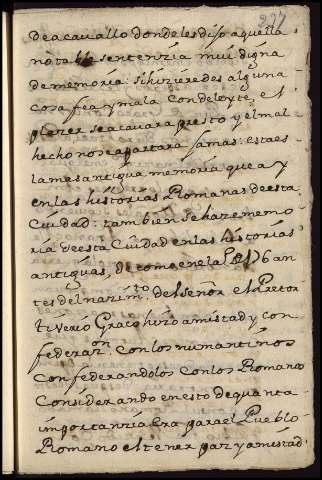 237
de a cauallo donde les dijo aquella
notable sentenzia mui digna
de memoria: si hizieredes alguna
cosa fea y mala con deleyte, el
plazer se acauara presto y el mal
hecho no se apartara jamas: esta es
la mas antigua memoria que ay
en las historias Romanas de esta
Ciudad: tambien se haze memo
ria de esta Ciudad en las historias
antiguas, de como en el a 176 an
tes del naзim.to del señor el Pretor
tiverio Graco hizo amistad y con
federaz.on con los numantinos
confederandolos con los Romanos
considerando en esto de quanta
importanzia era para el Pueblo
Romano el tener paz y amistad